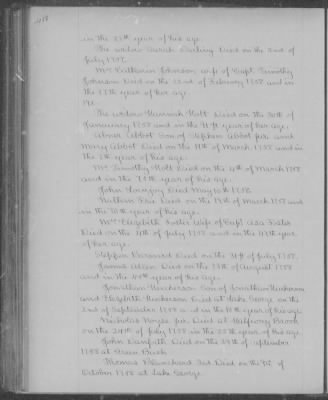 in the 25th year of his age.
The widow Sarah Darling Died on the 2nd of
July 1757.
Mrs Katharine Johnson wife of Capt. Timothy
Johnson Died on the 22nd of February 1758 and in
the 77th year of her age.
The widow Hannah Holt Died on the 30th of
Januaury 1758 and in the year of her age.
Abner Abbot Son of Stephen Abbot jun. and
Mary Abbot Died on the 11th of March 1758 and in
the year of his age.
Mr. Timothy Holt Died on the of March 1758
and in the year of his age.
John Died May 10th 1758.
Nathan Died on the 13th of March 1758 and
in the year of his age.
Mrs Elizabeth Foster wife of Capt. Asa Foster
Died on the 4th of July 1758 and in the 47th year
of her age.
Stephen Barnard Died on the of July 1758.
James Allen Died on the of August 1758
and in the year of his age.
Jonathan Hincherson Son of Jonathan Hincherson
and Elizabeth Hincherson Died at Lake George on the
2nd of September 1758 and in the 18th year of his age.
Nicholas Noyes jun. Died at Halfway Brook
on the 24th of July 1758 in the year of his age.
John Danforth Died on the of September
1758 at Green Bush.
Thomas Blanchard 3rd Died on the of
October 1758 at Lake George.